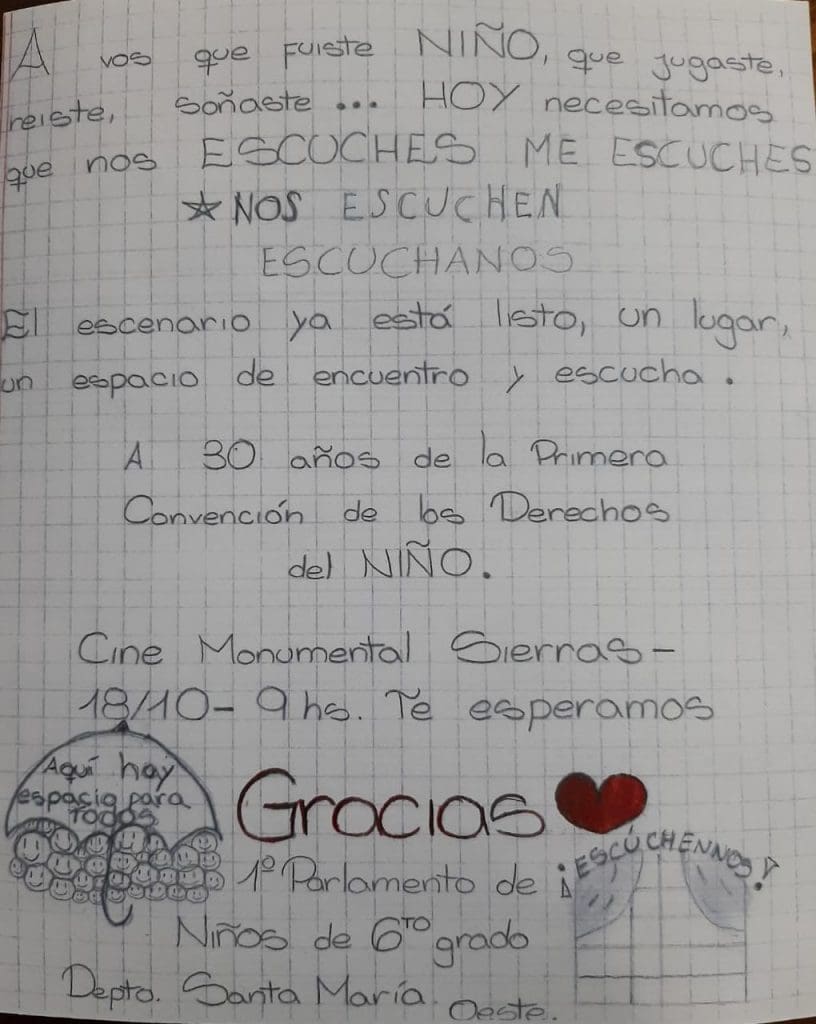 A vos que fuiste NIÑO, que jugaste,
reiste, soñaste ... HOY necesitamos
que nos ESCUCHES ME ESCUCHES
☆ NOS ESCUCHEN
ESCUCHANOS
El escenario ya está listo, un lugar,
un espacio de encuentro y escucha.
A 30 años de la Primera
Convención de los Derechos
del NIÑO.
Cine Monumental Sierras-
18/10- 9 hs. Te esperamos
Aquí hay
espacio para
todos
Gracias
¡ESCÚCHENNOS!
1º Parlamento de
Niños de 6TO grado
Depto. Santa María Oeste.